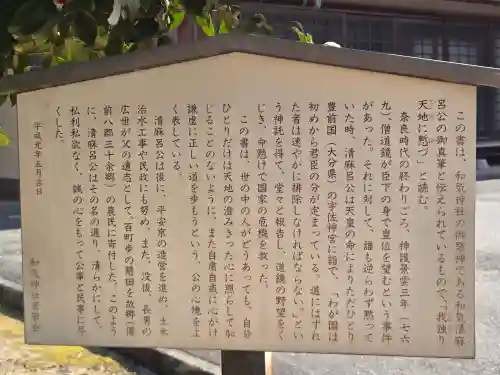 この書は、和気神社の御祭神である和気清麻
呂公の御真筆と伝えられているもので、「我独り
天地に慙づ」と読む。
奈良時代の終わりごろ、神護景雲三年（七六
九）僧道鏡が臣下の身で皇位を望むという事件
があった。それに対して、誰も逆らわず黙って
いた時、清麻呂公は天皇の命によりただひとり
豊前国（大分県）の宇佐神宮に詣で、「わが国は
初めから君臣の分が定まっている。道にはずれ
た者は速やかに排除しなければならない。」とい
う神託を得て、堂々と報告し、道鏡の野望をく
じき、命懸けで国家の危機を救った。
この書は、世の中の人がどうあっても、自分
ひとりだけは天地の澄みきった心に照らして恥
じることのないように、また自粛自戒に心がけ
謙虚に正しい道を歩もうという、公の心境をよ
く表している。
清麻呂公は後に、平安京の造営を進め、土木
治水工事や民政にも努め、また、没後、長男の
広世が父の遺志として、百町歩の墾田を故郷（備
前八郡三十余郷）の農民に寄付した。このよう
に、清麻呂公はその名の通り、清らかにして、
私利私欲なく、誠の心をもって公事と民事に尽
くした。
平成九年五月吉日
和気神社奉賛会